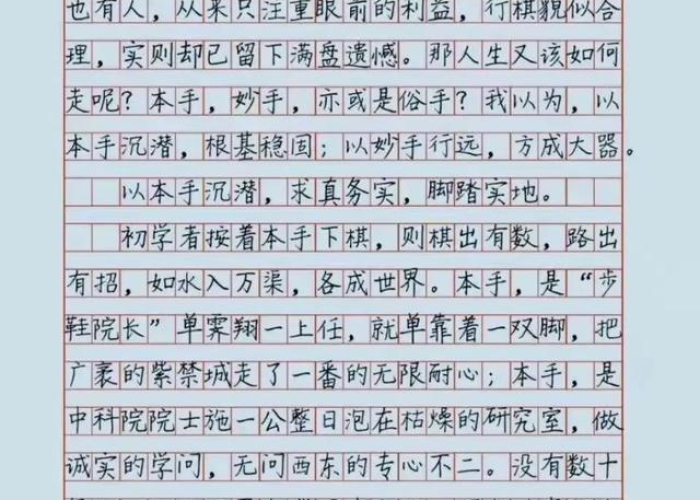 也有人，从来只注重眼前的利益，行棋貌似合
理，实则却已留下满盘遗憾。那人生又该如何
走呢？本手，妙手，亦或是俗手？我以为，以
本手沉潜，根基稳固；以妙手行远，方成大器。
以本手沉潜，求真务实，脚踏实地。
初学者按着本手下棋，则棋出有数，路出
有招，如水入万渠，各成世界。本手，是“步
鞋院长”单霁翔一上任，就单靠着一双脚，把
广袤的紫禁城走了一番的无限耐心；本手，是
中科院院士施一公整日泡在枯燥的研究室，做
诚实的学问，无问西东的专心不二。没有数十